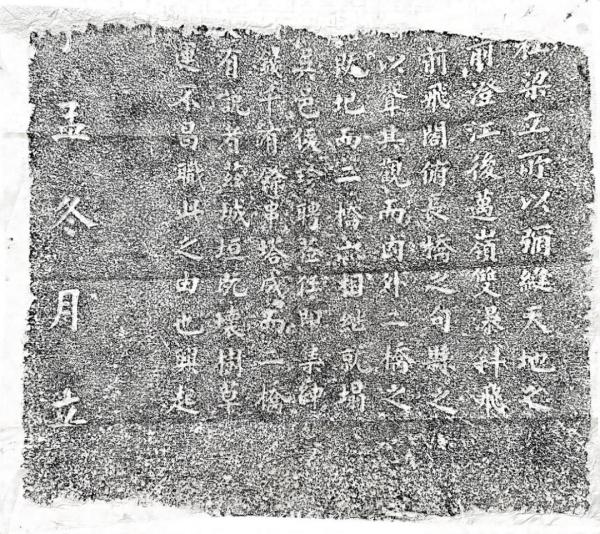 梁立所以彌縫天地之
前澄江後萬嶺雙瀑斜飛
前飛閣俯長橋之句縣之
以聳其觀而內外二橋之
既圮而二橋亦相繼就塌
其邑侯珍聘蒞任即集紳
錢千緡餘串塔成而二橋
有說者茲城垣死壞樹草
運不昌職此之由也興起
孟冬月立